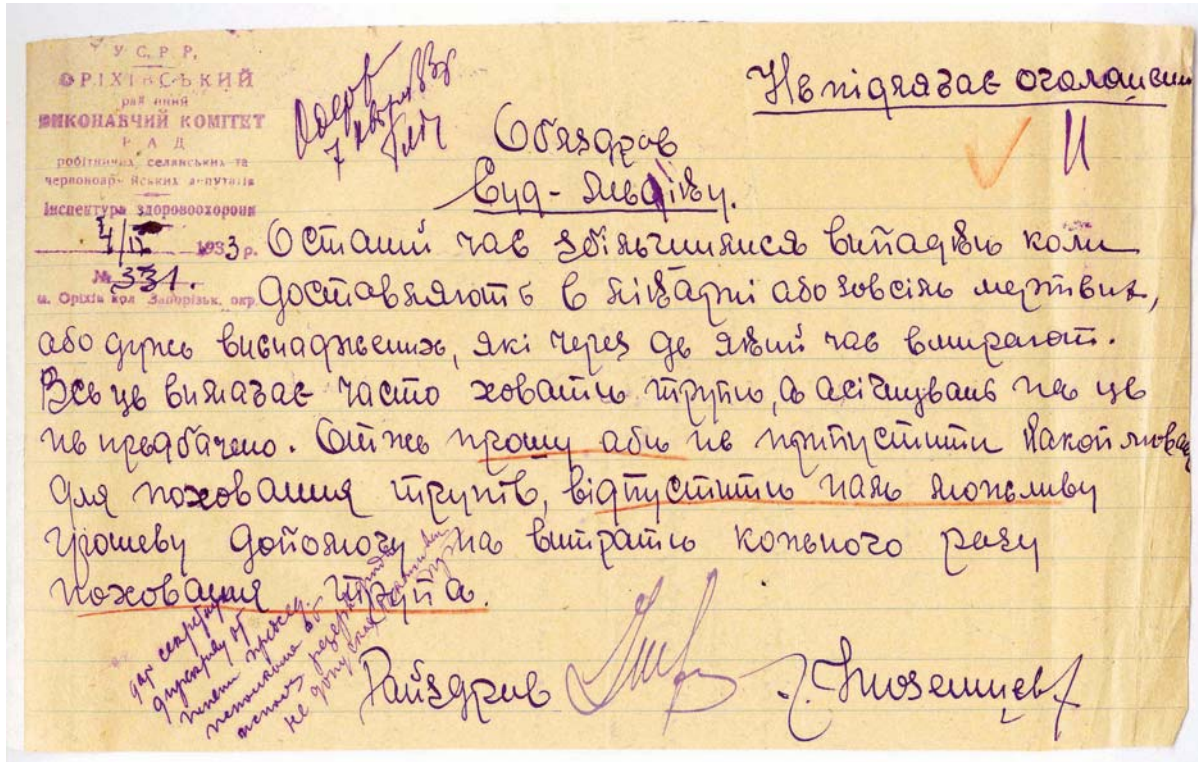 У. С. Р. Р.
ОРІХІВСЬКИЙ
районний
ВИКОНАВЧИЙ КОМІТЕТ
Р А Д
робітничих, селянських та
червоноарм-йських депутатів
Інспектура здоровоохорони
4/IV 1933 р.
№ 331.
м. Оріхів кол. Запорізьк. окр.
7 апреля 33г
Не підлягає оголошенню
Облздрав
Суд-медіку.
Останій час збільчилися випадки коли
доставляють в лікарні або зовсім мертвих,
або дуже виснаджених, які через де який час вмирают.
Все це вимагає часто ховати трупи, а асігнувань на це
не предбачено. Отже прошу аби не припустити
для поховання трупів, відпустити нам можливу
грошеву допомогу на витрати кожного разу
поховання трупа.
Райздрав